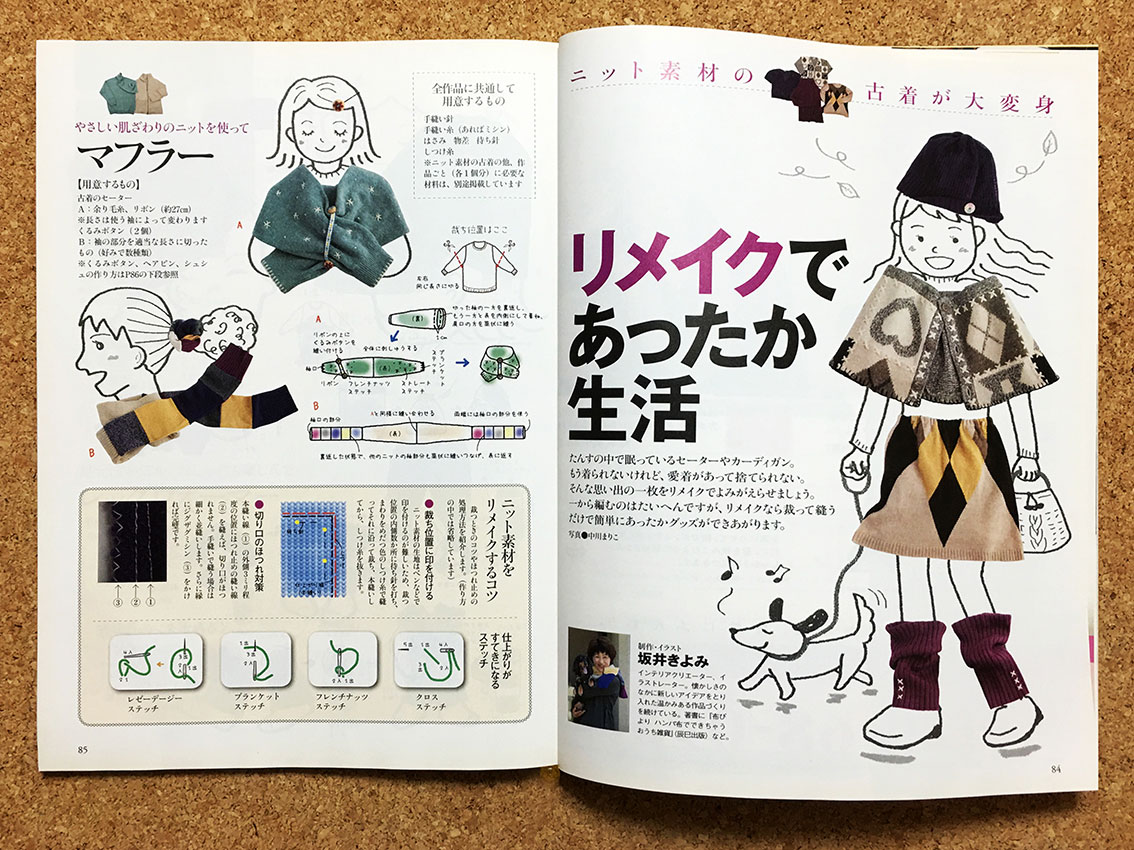 ニット素材の
古着が大変身
リメイクで
あったか
生活
たんすの中で眠っているセーターやカーディガン。
もう着られないけれど、愛着があって捨てられない。
そんな思い出の一枚をリメイクでよみがえらせましょう。
一から編むのはたいへんですが、リメイクなら裁って縫う
だけで簡単にあったかグッズができあがります。
写真●中川まりこ
制作・イラスト
坂井きよみ
インテリアクリエーター、イ
ラストレーター。懐かしさの
なかに新しいアイデアをとり
入れた温かみある作品づくり
を続けている。著書に『布び
より ハンパ布でできちゃう
おうち雑貨』(辰巳出版)など。
84
やさしい肌ざわりのニットを使って
マフラー
【用意するもの】
古着のセーター
A:余り毛糸、リボン(約27cm)
※長さは使う袖によって変わります
くるみボタン(2個)
B:袖の部分を適当な長さに切った
もの(好みで数種類)
※くるみボタン、ヘアピン、シュシ
ュの作り方はP86の下段参照
全作品に共通して
用意するもの
手縫い針
手縫い糸(あればミシン)
はさみ 物差 待ち針
しつけ糸
※ニット素材の古着の他、作
品ごと(各1個分)に必要な
材料は、別途掲載しています
A
裁ち位置はここ
左右
同じ長さに切る
A
切った袖の一方を裏返し、
もう一方と表を内側にして重ね、
肩口の方を筒状に縫う
(裏)
1cm
リボンの上に
くるみボタンを
縫い付ける
全体に刺しゅうする
袖口
(表)
ブランケットステッチ
リボン
フレンチナッツ
ステッチ
ストレート
ステッチ
B
B
袖口の部分
Aと同様に縫い合わせる
両端には袖口の部分を使う
(表)
裏返した状態で、他のニットの袖部分も筒状に縫いつなげ、表に返す
ニット素材を
リメイクするコツ
裁つときのコツやほつれ止めの
処理方法を紹介します。(作り方
の中では省略しています)
●裁ち位置に印を付ける
ニット素材の生地はペンなどで
印を付けるのが難しいため、裁つ
位置の内側数か所に待ち針を打ち、
まわりをめだつ色のしつけ糸で縫
ってそれに沿って裁ち、本縫いし
てから、しつけ糸を抜きます。
●切り口のほつれ対策
本縫い線(①)の外側3ミリ程
度の位置にほつれ止めの縫い線
(②)を縫えば、切り口がほつ
れません。手縫いで縫う場合は
細かく並縫いします。さらに縁
にジグザグミシン(③)をかけ
れば完璧です。
③
②
①
仕上がりが
すてきになる
ステッチ
クロス
ステッチ
フレンチナッツ
ステッチ
ブランケット
ステッチ
レゼーデージー
ステッチ
85